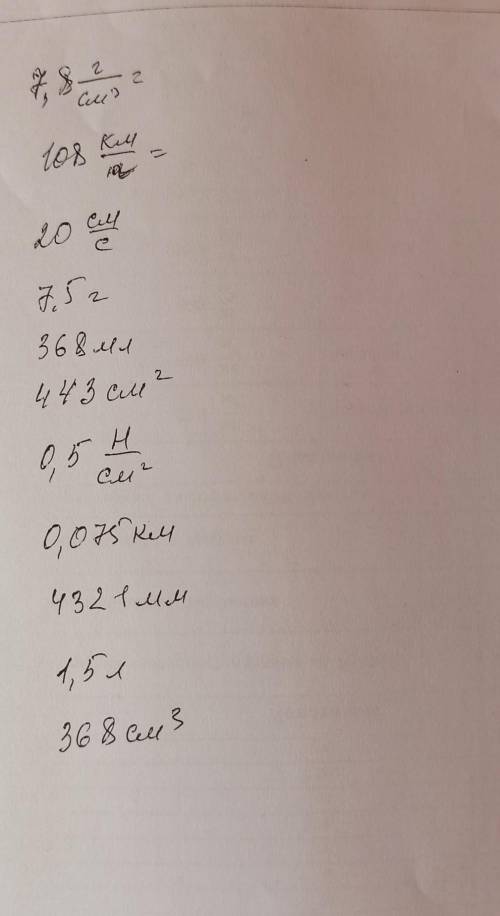 7,8 г/см³ =
108 км/ =
20 см/с
7,5 г
368 мл
443 см²
0,5 Н/см²
0,075 км
4321 мм
1,5 л
368 см³